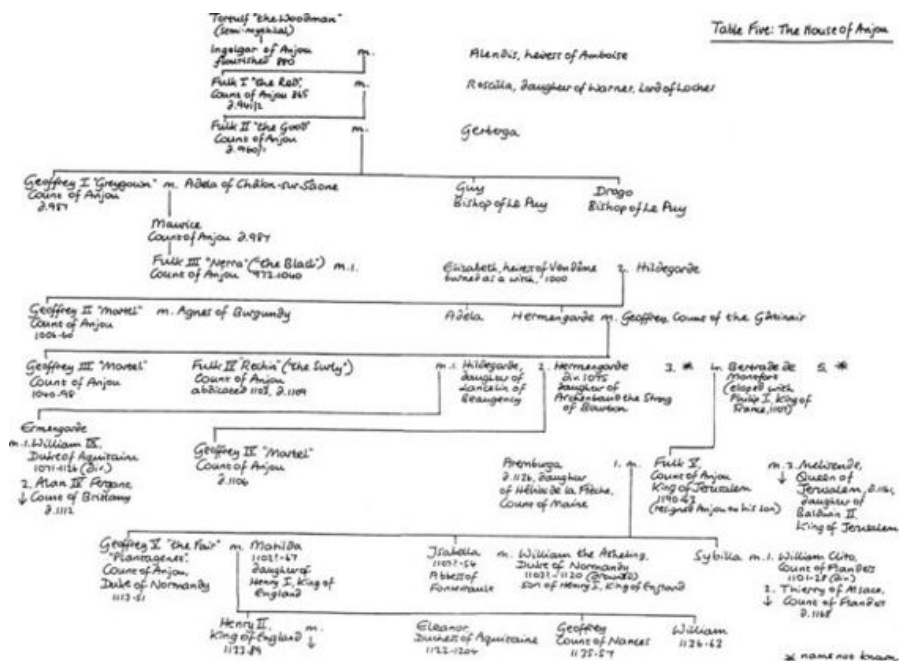 Table Five: The House of Anjou
Tortulf "the Woodman"
(semi-mythical)
Ingelgar of Anjou
flourished 880
m.
Alendis, heiress of Amboise
Fulk I "the Red",
Count of Anjou 865
d.941/2
m.
Roscilla, daughter of Warner, Lord of Loches
Fulk II "the Good"
Count of Anjou
d.960/1
m.
Gerberga
Geoffrey I "Greygown" m. Adela of Châlon-sur-Saone
Count of Anjou
d.987
Guy
Bishop of Le Puy
Drogo
Bishop of Le Puy
Maurice
Count of Anjou d.987
Fulk III "Nerra" ("the Black") m.1.
Count of Anjou 972-1040
Elizabeth, heiress of Vendôme
burned as a witch, 1000
2. Hildegarde
Geoffrey II "Martel" m. Agnes of Burgundy
Count of Anjou
1006-60
Adela
Hermengarde m. Geoffrey, Count of the Gâtinais
Geoffrey III "Martel"
Count of Anjou
1040-98
Fulk IV "Rechin" ("the Surly")
Count of Anjou
abdicated d.1109
m.1. Hildegarde,
daughter of
Lancelin of
Beaugency
2. Hermengarde
div.1075
daughter of
Archenbaud the Strong
of Bourbon
3. *
4. Bertrade de
Montfort
(eloped with
Philip I, King of
France,
5. *
Ermengarde
m.1. William IX,
Duke of Aquitaine
1071-1126 (div.)
2. Alan IV Fergant,
↓ Count of Brittany
d.1112
Geoffrey IV "Martel"
Count of Anjou
d.1106
Aremburga
d.1126, daughter
of Hélias de la Flèche,
Count of Maine
1. m.
Fulk V,
Count of Anjou
King of Jerusalem
(resigned Anjou to his son)
m.2. Melisende,
↓ Queen of
Jerusalem,
daughter of
Baldwin II
King of Jerusalem
Geoffrey V "the Fair" m.
"Plantagenet"
Count of Anjou,
Duke of Normandy
1113-51
Matilda
1102?-67
daughter of
Henry I, King of
England
Isabella
1107?-54
Abbess of
Fontevrault
m. William the Atheling,
Duke of Normandy
1103?-1120 (drowned)
son of Henry I, King of England
Sybilla
m.1. William Clito,
Count of Flanders
1101-28 (div.)
2. Thierry of Alsace,
↓ Count of Flanders
d.1168
Henry II,
King of England
1133-89
m.
↓
Eleanor
Duchess of Aquitaine
1122-1204
Geoffrey
Count of Nantes
William
1136-63
* name not known